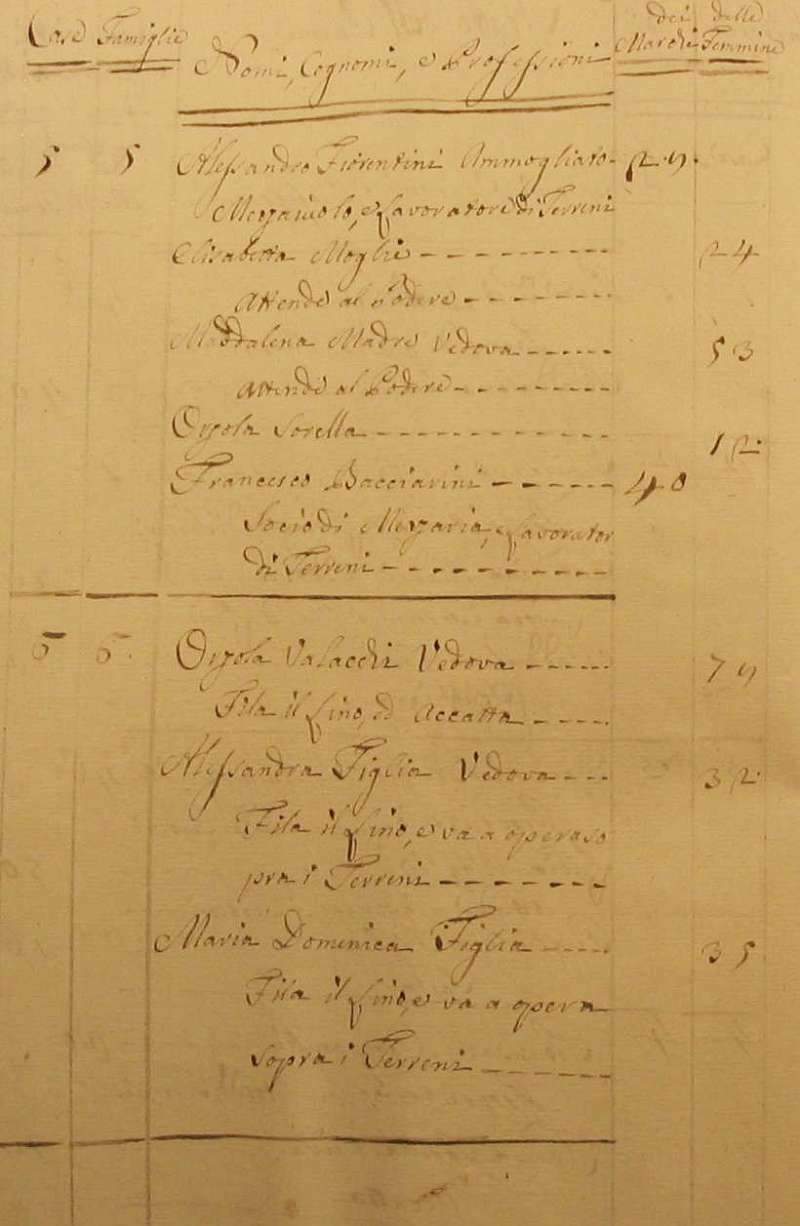 dei delle
Case Famiglie Nomi, Cognomi, e Professioni Maschi Femmine
5 5 Alessandro Fiorentini Ammogliato 29
Mezaiuolo, e Lavoratore di Terreni
Elisabetta Moglie 24
Attende al Podere
Maddalena Madre Vedova 53
Attende al Podere
Orsola Sorella 12
Francesco Bacciarini 40
Socio di Mezaria, e Lavorator
di Terreni
6 6 Orsola Valacchi Vedova 79
Fila il Lino, ed Accatta
Alessandra Figlia Vedova 32
Fila il Lino, e va a opera so
pra i Terreni
Maria Domenica Figlia 35
Fila il Lino, e va a opera
sopra i Terreni